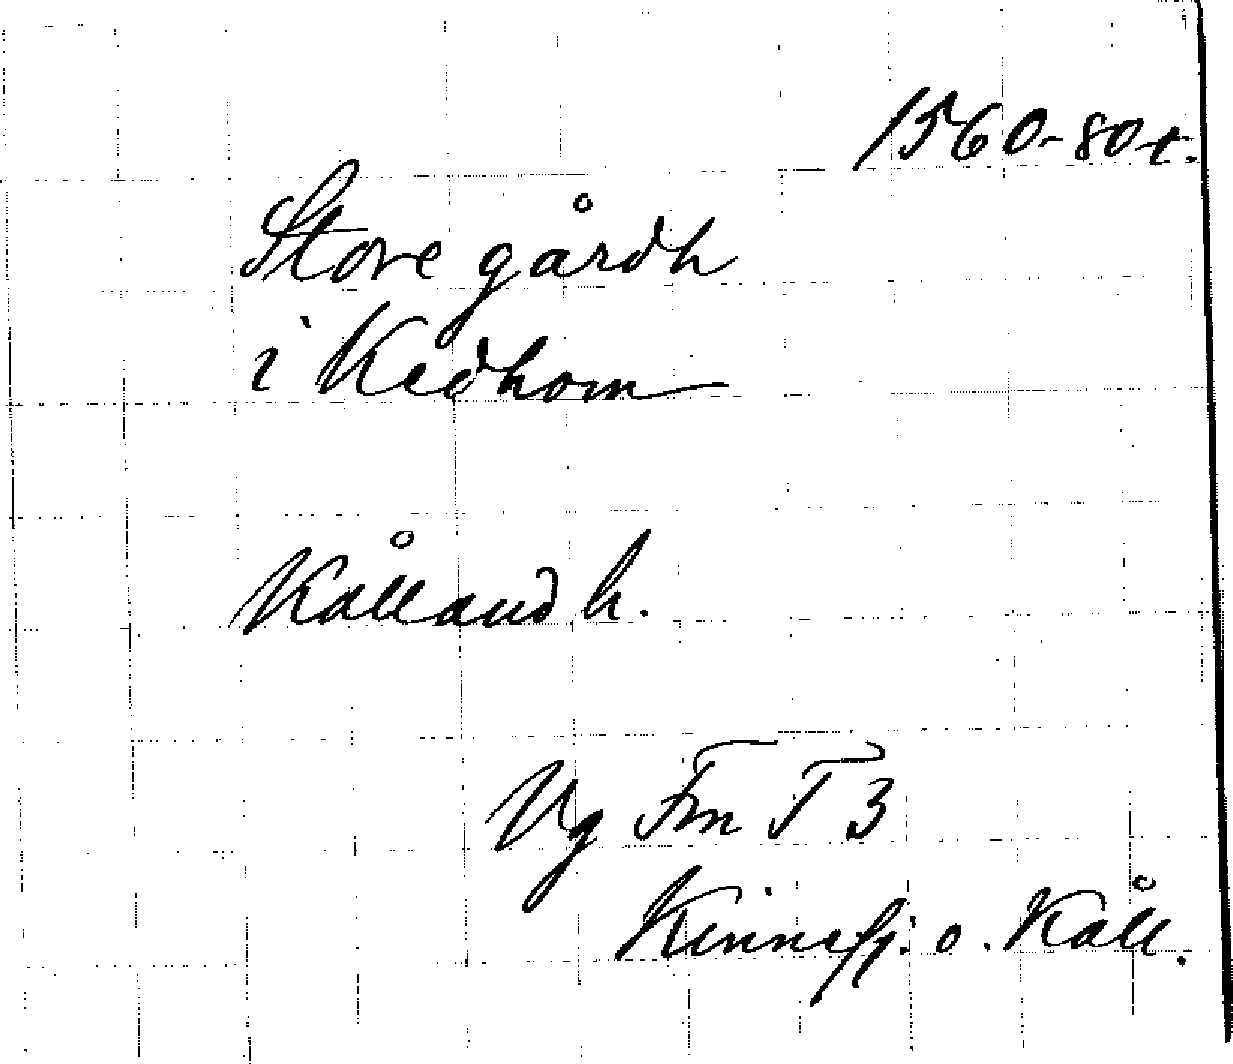 1560-80 t.
Store gårdh
i Kedhom
Kålland h.
Vg Fm T 3
Kinnefj. o. Kåll.